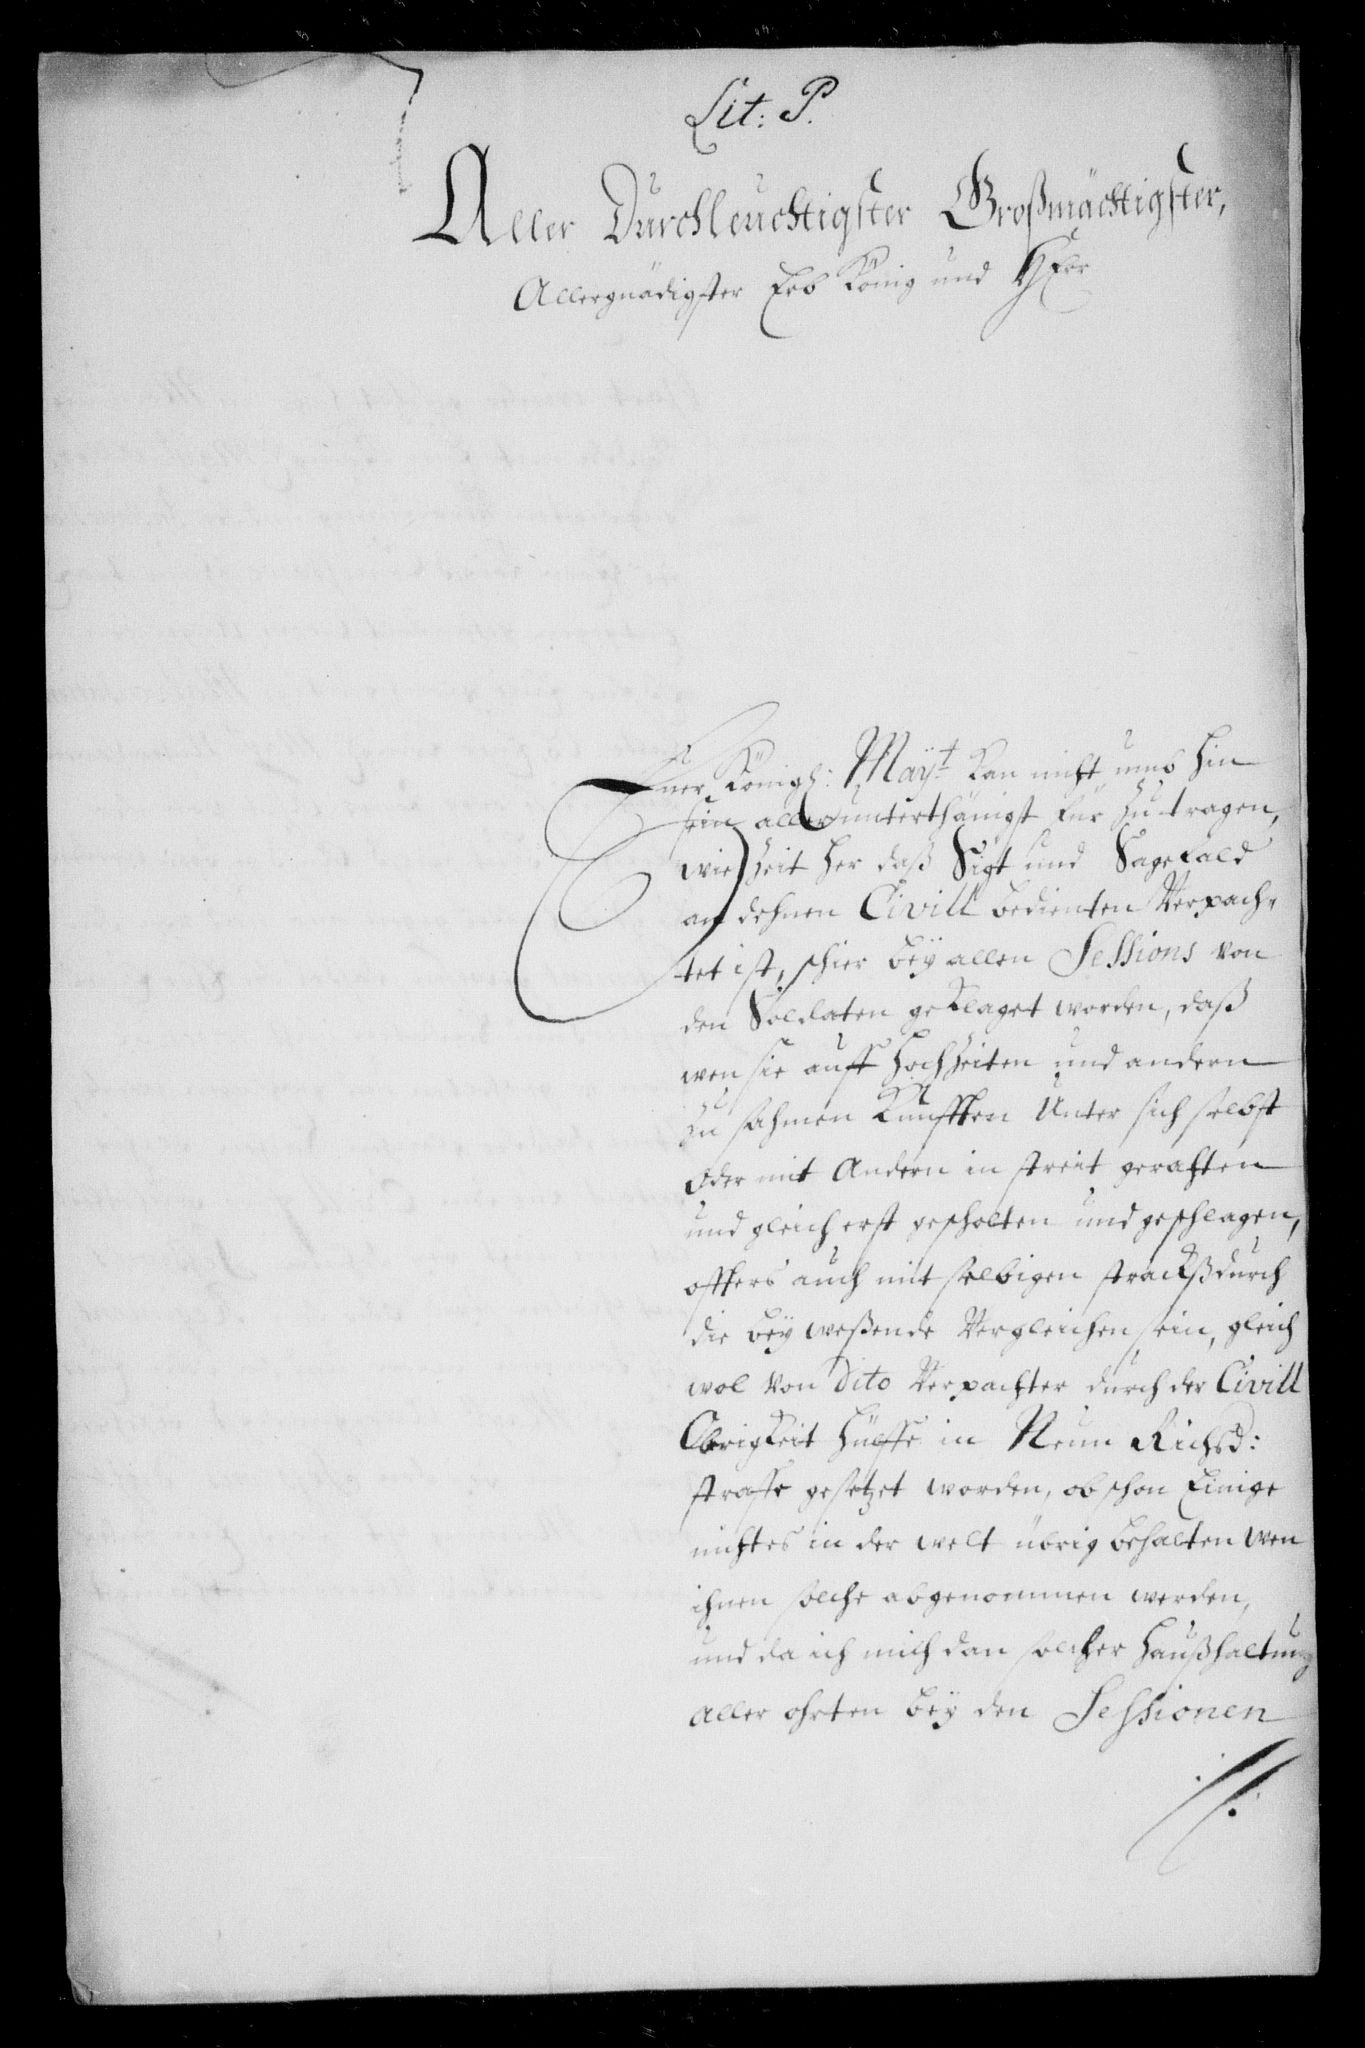 Lit: P.
Aller Durchleuchtigster Großmächtigster,
Allergnädigster Erb König und Herr
Euer Königl: Mayt. Kan nicht umb hin
hin aller unterthänigst für zu tragen,
wie Zeit her daß Sigt und Sagefald
an dehnen Civill bedienten Verpach,,
tet ist, schier bey allen Sessions von
den Soldaten geklaget worden, daß
wen sie auff Hochzeiten und andern
zu sahmen Kunfften Unter sich selbst
oder mit Andern in streit gerahten
und gleich erst gescholten und geschlagen,
offters auch mit selbigen strackß durch
die bey weßende Vergleichen sein, gleich
wol von dito Verpachter durch der Civill
Obrigkeit hülffe in Neun Richsd:
straffe gesetzet worden, ob schon Einige
nichtes in der welt übrig behalten wen
ihnen solche abgenommen werden,
und da ich mich dan solcher Haußhaltung
aller ohrten bey den Sessionen